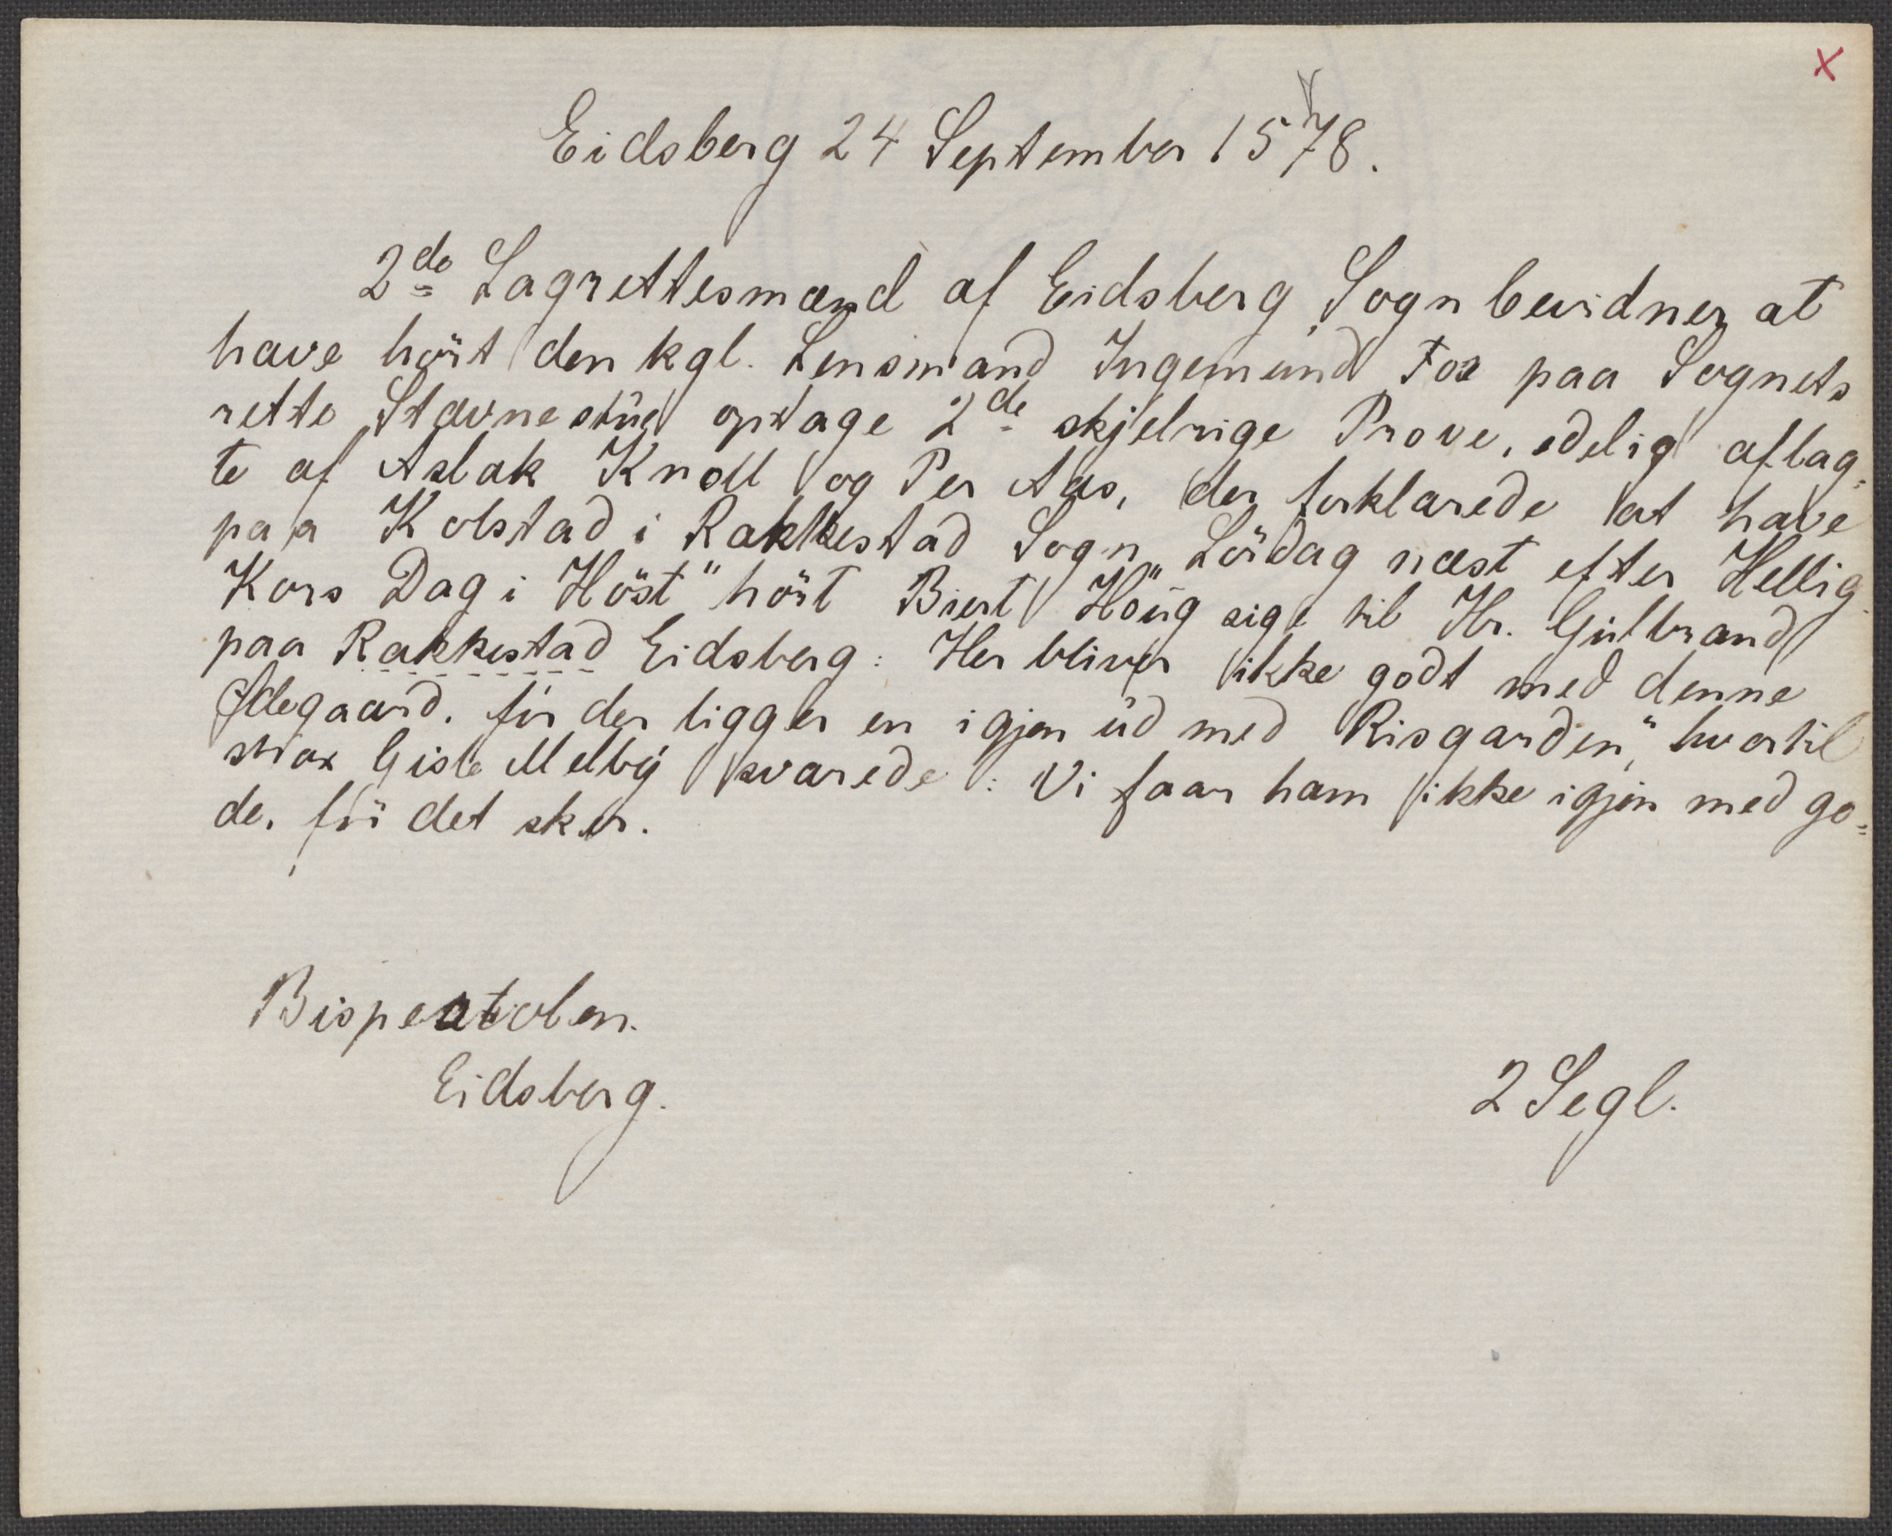 x
Eidsberg 24 September 1578.
2de Lagrettesmænd af Eidsberg Sogn bevidner at
have hört den kgl. Lensmand Ingemund Fos paa Sognets
rette Stævnestue optage 2de skjelrige Prove, edelig aflag-
te af Aslak Knoll og Per Aas, der forklarede at have
paa Kolstad i Rakkestad Sogn „Lördag næst efter Hellig
Kors Dag i Höst" hört Biert Höug sige til Hr. Gulbrand
paa Rakkestad Eidsberg: Her bliver ikke godt med denne
Ødegaard, för der ligger en igjen ud med Risgarden", hvortil
strax Gisle Melby svarede: Vi faar ham ikke igjen med go=
de, för det sker.
Bispestolen.
Eidsberg.
2 Segl.